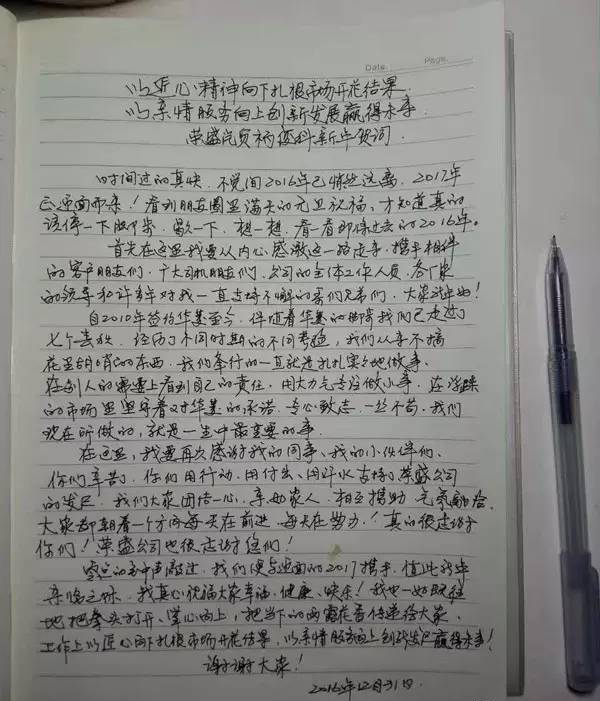 Date.        Page.
以匠心精神向下扎根市场开花结果
以亲情服务向上创新发展赢得未来
荣盛 新年贺词
时间过的真快，不觉间2016年已悄然远离，2017年
正迎面而来！看到朋友圈里满天的元旦祝福，才知道真的
该停一下脚步，留一下，想一想，看一看即将过去的2016年。
首先在这里我要从内心感激这一路走来，携手相伴
的客户朋友们，广大司机朋友们，公司的全体工作人员，各厂家
的领导和许多年对我一直支持不懈的哥们兄弟们，大家辛苦！
自2010年签约华美至今，伴随着华美的脚步我们已走过
七个春秋，经历了不同时期的不同考验，我们从来不搞
花里胡哨的东西，我们奉行的一直就是扎扎实实地做事。
在别人的需要上看到自己的责任，用大力气专注做小事，在浮躁
的市场里坚守着对华美的承诺，专心致志，一丝不苟，我们
现在所做的，就是一生中最重要的事。
在这里，我要再次感谢我的同事、我的小伙伴们，
你们辛苦，你们用行动、用付出、用汗水支持了荣盛公司
的发展，我们大家团结一心，亲如家人，相互携助，
大家都朝着一个方向每天在前进，每天在努力！真的很感谢
你们！荣盛公司也很感谢你们！
零点的钟声敲过，我们便与迎面的2017携手，值此新年
来临之际，我真心祝福大家幸福、健康、快乐！我也一如既往
地把拳头打开，掌心向上，把当下的雨露花香传递给大家，
工作上以匠心向下扎根市场开花结果，以亲情服务向上创新发展赢得未来！
谢谢大家！
2016年12月31日